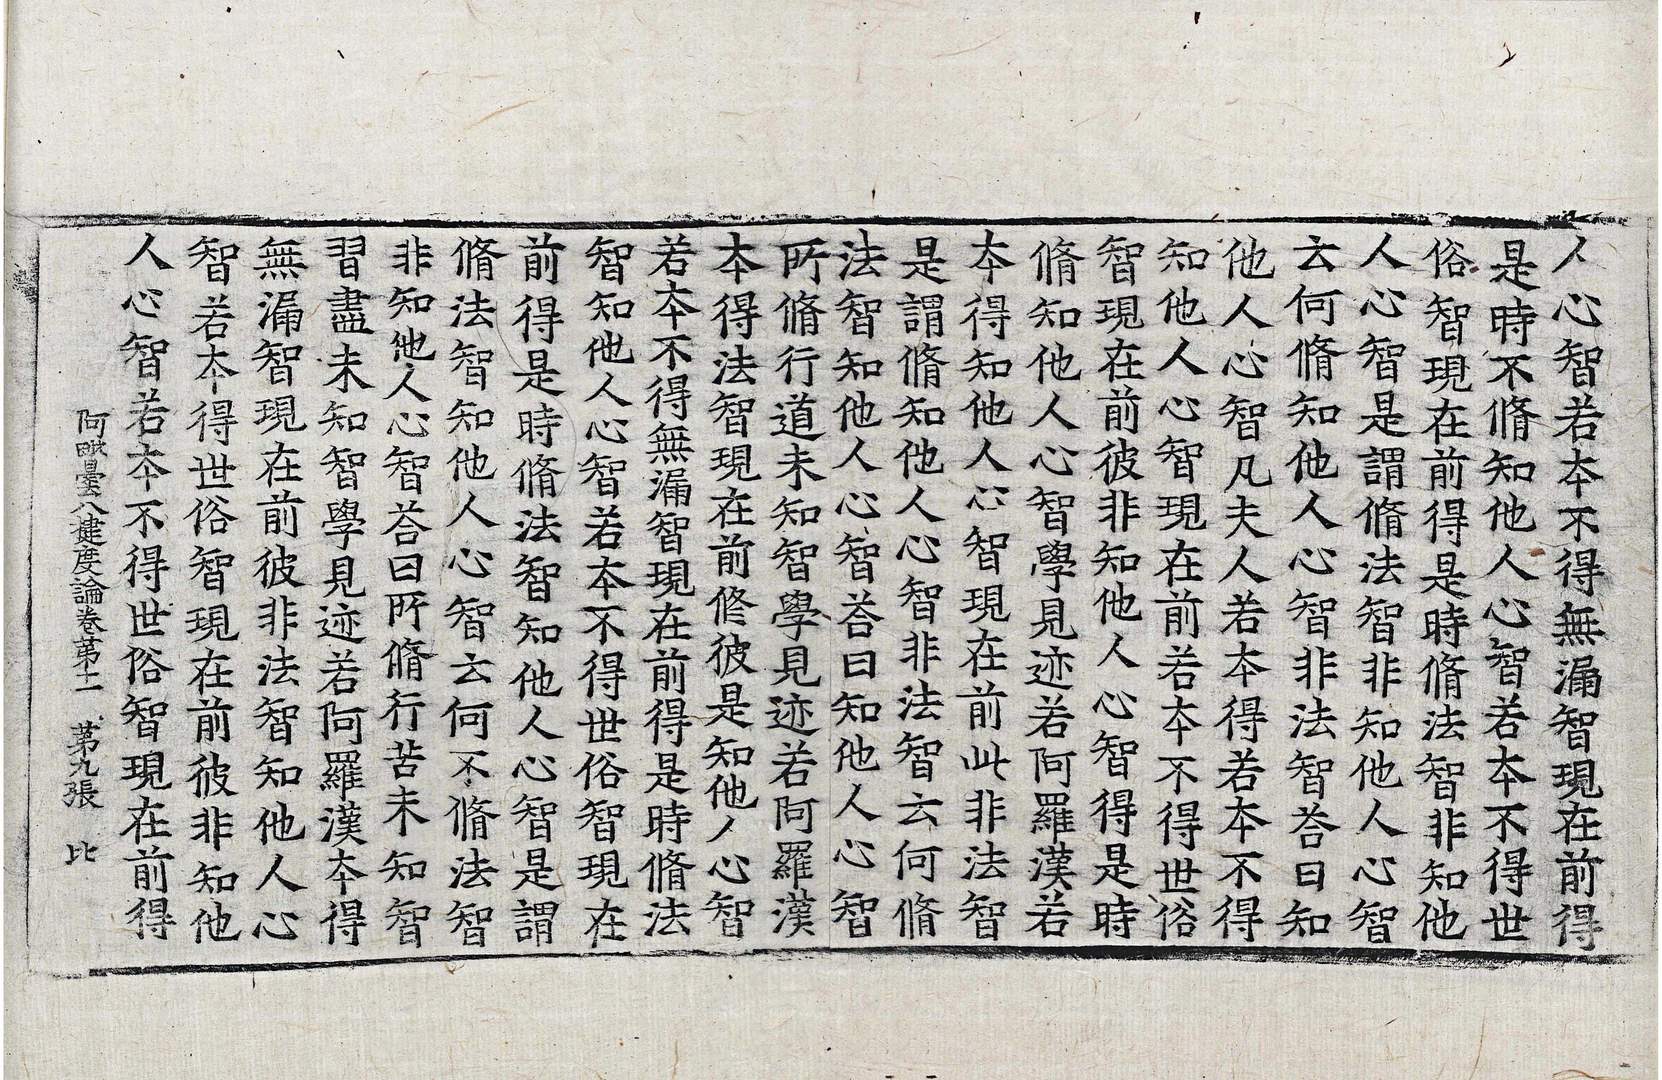 人心智若本不得無漏智現在前得
是時不脩知他人心智若本不得世
俗智現在前得是時脩法智非知他
人心智是謂脩法智非知他人心智
云何脩知他人心智非法智荅曰知
他人心智凡夫人若本得若本不得
知他人心智現在前若本不得世俗
智現在前彼非知他人心智得是時
脩知他人心智學見迹若阿羅漢若
本得知他人心智現在前此非法智
是謂脩知他人心智非法智云何脩
法智知他人心智荅曰知他人心智
所脩行道未知智學見迹若阿羅漢
本得法智現在前修彼是知他人心智
若本不得無漏智現在前得是時脩法
智知他人心智若本不得世俗智現在
前得是時脩法智知他人心智是謂
脩法智知他人心智云何不脩法智
非知他人心智荅曰所脩行苦未知智
習盡未知智學見迹若阿羅漢本得
無漏智現在前彼非法智知他人心
智若本得世俗智現在前彼非知他
人心智若本不得世俗智現在前得
阿毗曇八揵度論卷第十二 第九張 比